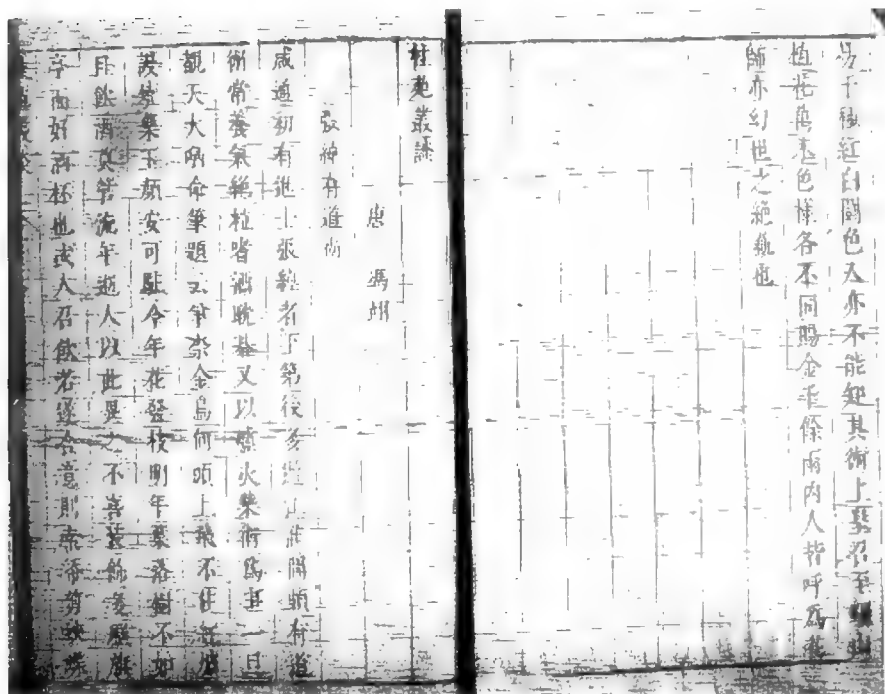 易千種紅白鬬色人亦不能知其術上皇召至驪山
植花萬本色樣各不同賜金千餘兩內人皆呼為花
師亦幻世之絕藝也
桂苑叢談
唐 馮翊
張綽有道術
咸通初有進士張綽者下第後多遊江淮間頗有道
術常養氣絕粒嗜酒耽棊又以爐火藥術為事一旦
覩天大哂命筆題云爭奈金烏何頭上飛不住紅爐
謾燒藥玉顏安可駐今年花發枝明年葉落樹不如
且飲酒莫管流年逝人以此異之不喜裝飾多歷旗
亭而好酒杯也或人召飲若遂合意則索紙剪蛺蝶